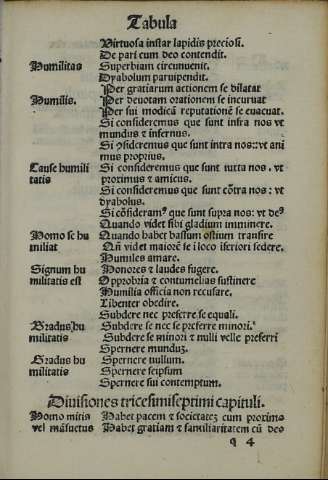 Tabula
Virtuosa instar lapidis preciosi.
De pari cum deo contendit.
Humilitas Superbiam circumuenit.
Dyabolum paruipendit.
Per gratiarum actionem se dilatat
Humilis. Per deuotam orationem se incuruat
Per sui modicā reputationē se euacuat.
Si consideremus que sunt infra nos vt
mundus & infernus.
Si ↄsideremus que sunt intra nos: vt ani
mus proprius.
Cause humili Si consideremus que sunt iuxta nos. vt
tatis proximus & amicus.
Si consideremus que sunt cōtra nos: vt
dyabolus.
Si cōsideramꝰ que sunt supra nos: vt deꝰ
Quando videt sibi gladium imminere.
Homo se hu Quando habet bassum ostium transire
miliat Qñ videt maiorē se i loco iferiori sedere.
Humiles amare.
Signum hu Honores & laudes fugere.
militatis est Opprobria & contumelias sustinere
Humilia officia non recusare.
Libenter obedire.
Subdere nec preferre se equali.
Gradus hu Subdere se nec se preferre minori.
militatis Subdere se minori & nulli velle preferri
Spernere mundum.
Gradus hu Spernere nullum.
militatis Spernere seipsum
Spernere sui contemptum.
Diuisiones tricesimiseptimi capituli.
Homo mitis Habet pacem & societatez cum proximo
vel māsuetus Habet gratiam & familiaritatem cū deo
q 4